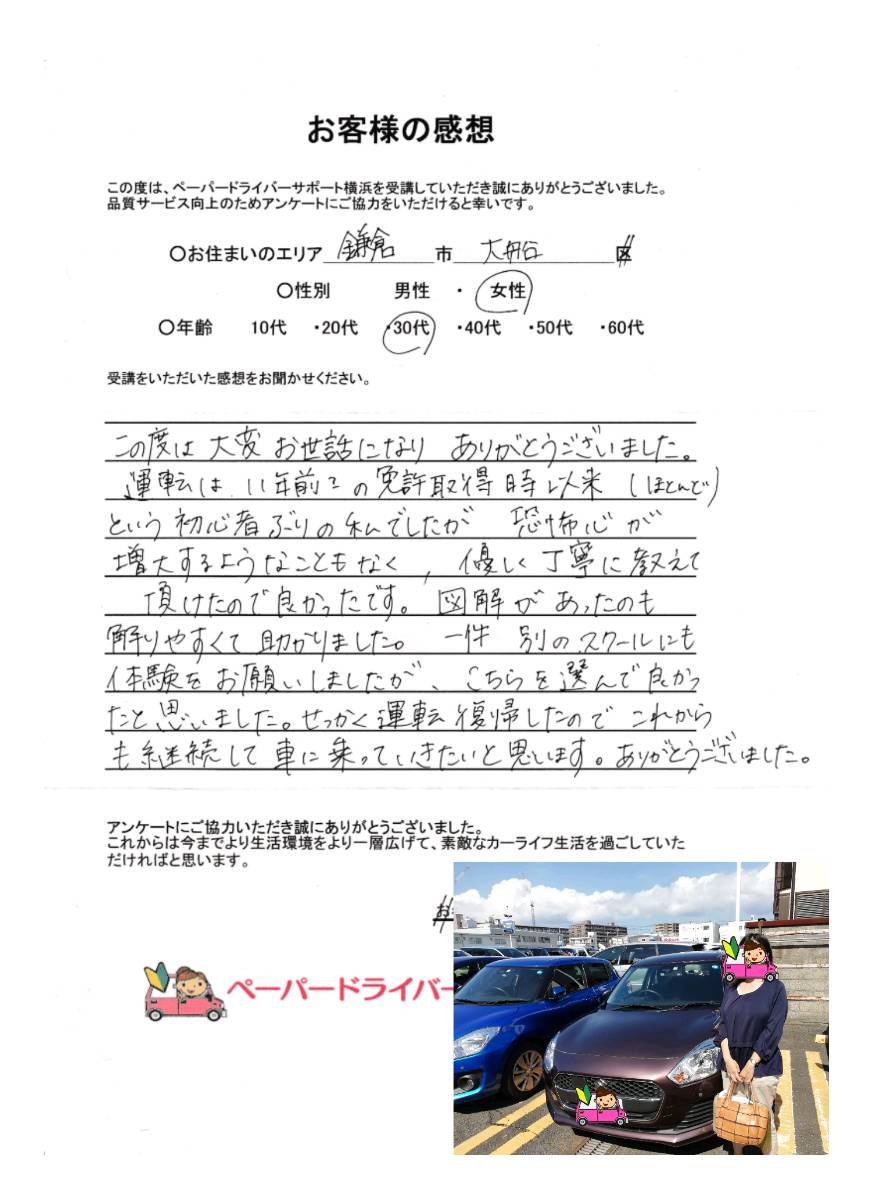 お客様の感想
この度は、ペーパードライバーサポート横浜を受講していただき誠にありがとうございました。
品質サービス向上のためアンケートにご協力をいただけると幸いです。
〇お住まいのエリア 鎌倉 市 大船 区
〇性別 男性 ・ 女性
〇年齢 10代 ・20代 ・30代 ・40代 ・50代 ・60代
受講をいただいた感想をお聞かせください。
この度は 大変 お世話になり ありがとうございました。
運転は、11年前の免許取得時以来 (ほとんど)
という 初心者ぶりの私でしたが 恐怖心が
増大するようなこともなく, 優しく丁寧に教えて
頂けたので良かったです。 図解があったのも
解りやすくて 助かりました。 一件 別のスクールにも
体験をお願いしましたが、こちらを選んで良かっ
たと思いました。せっかく運転復帰したので これから
も継続して車に乗っていきたいと思います。ありがとうございました。
アンケートにご協力いただき誠にありがとうございました。
これからは今までより生活環境をより一層広げて、素敵なカーライフ生活を過ごしていた
だければと思います。
ペーパードライバー